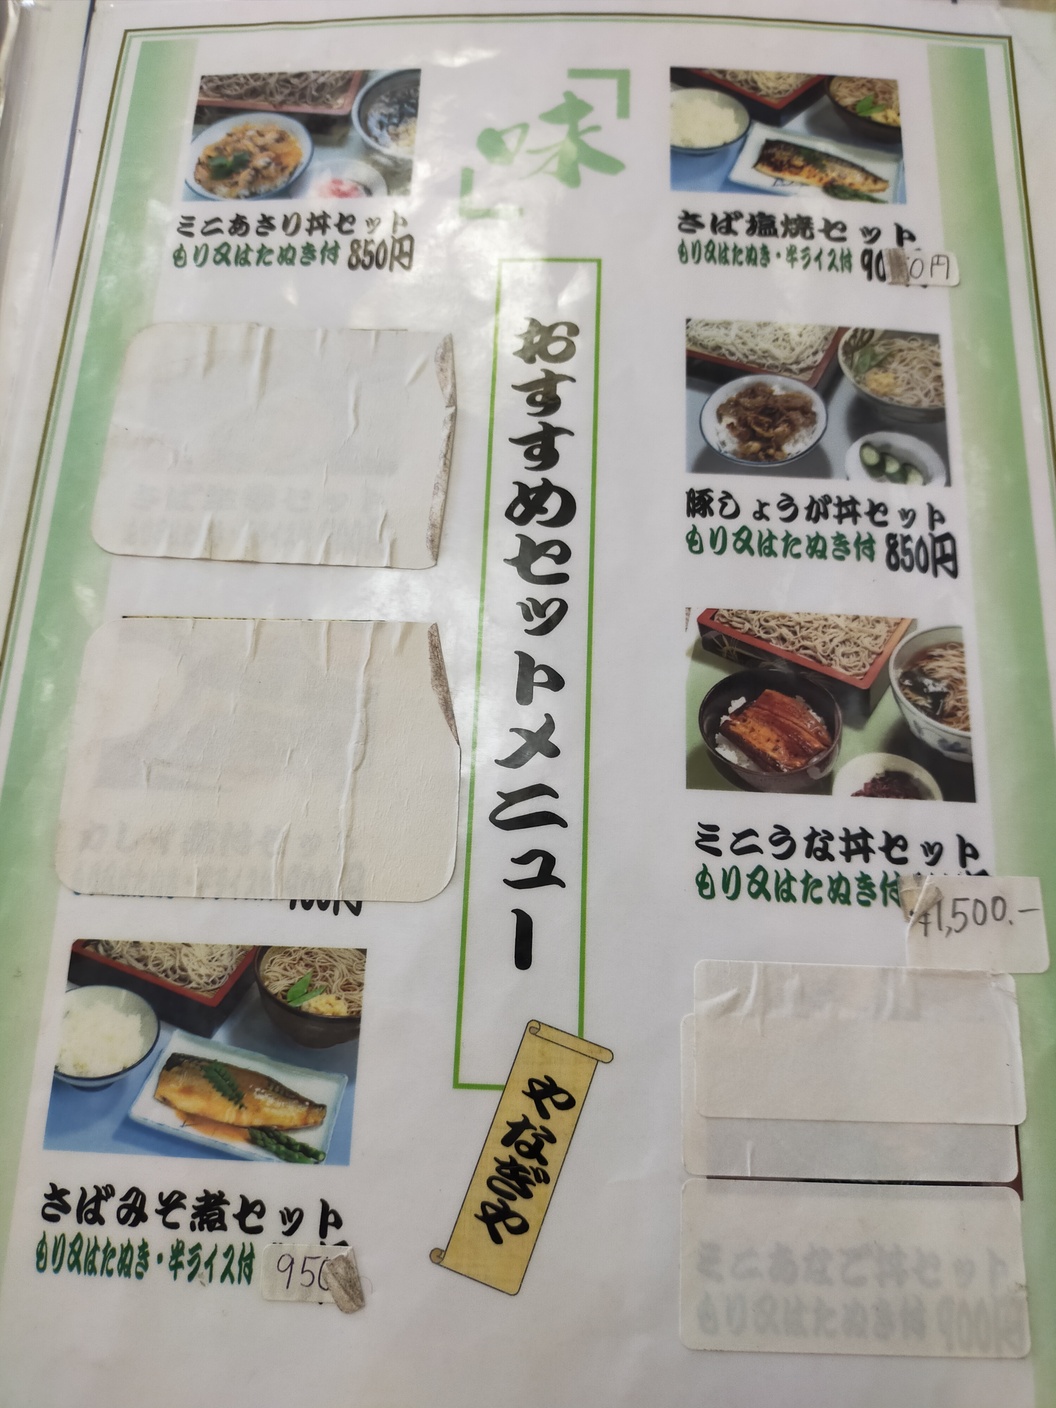 味
おすすめセットメニュー
やなぎや
ミニあさり丼セット
もり又はたぬき付 850円
さばみそ煮セット
もり又はたぬき・半ライス付
950
さば塩焼セット
もり又はたぬき・半ライス付
0円
豚しょうが丼セット
もり又はたぬき付 850円
ミニうな丼セット
もり又はたぬき付
¥1,500.-
ミニあなご丼セット
もり又はたぬき付 900円